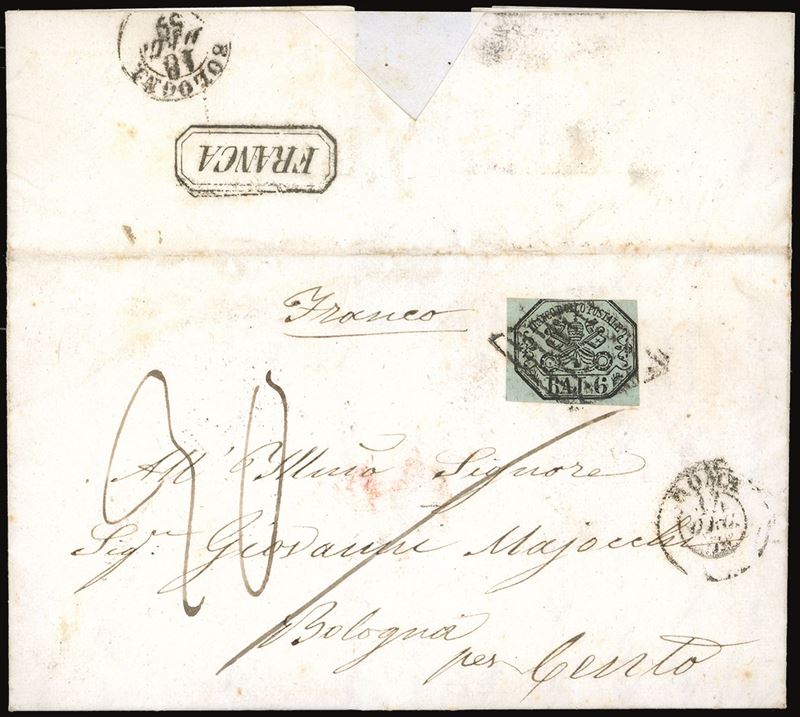 BOLOGNA
18
55
FRANCA
Franco
FRANCO BOLLO POSTALE
BAJ. 6
20
All' Illmo Signore
Sigr. Giovanni Majocchi
Bologna
per Cento
ROMA